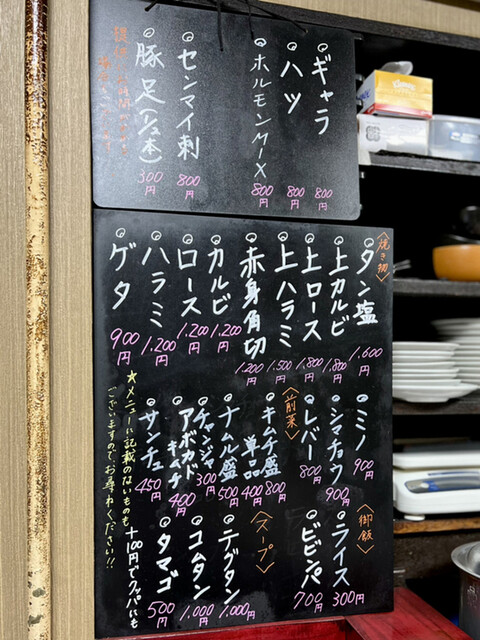 ギャラ 800円
ハツ 800円
ホルモンMIX 800円
センマイ刺 800円
豚足(1/2本) 300円
〈焼き物〉
タン塩 1,600円
上カルビ 1,800円
上ロース 1,800円
上ハラミ 1,500円
赤身角切 1,200円
カルビ 1,200円
ロース 1,200円
ハラミ 1,200円
ゲタ 900円
ミノ 900円
シマチョウ 900円
レバー 800円
〈前菜〉
キムチ盛 800円
単品 400円
ナムル盛 500円
チャンジャ 300円
アボカドキムチ 400円
サンチュ 450円
〈御飯〉
ライス 300円
ビビンバ 700円
〈スープ〉
テグタン 1,000円
コムタン 1,000円
タマゴ 500円
+100円でクッパにも
★メニューに記載のないものも
ございますので、お尋ねください!!